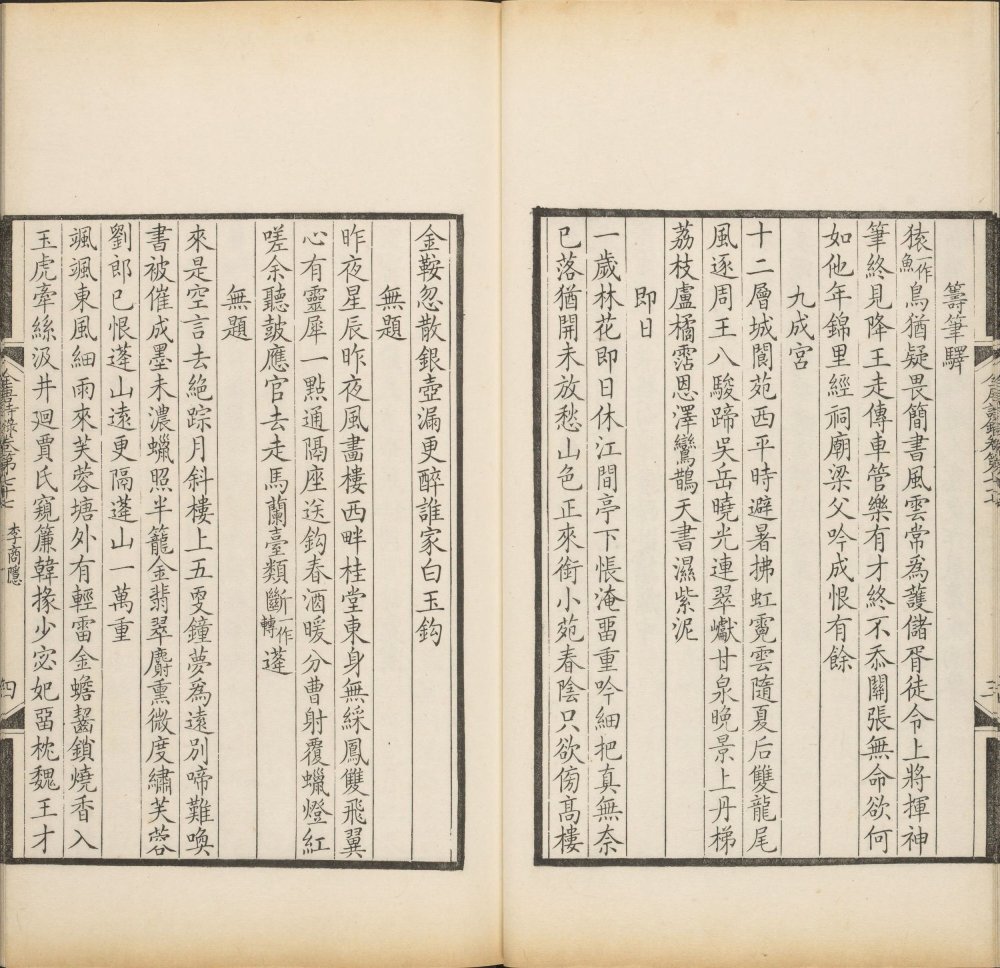 籌筆驛
猿一作魚鳥猶疑畏簡書風雲常為護儲胥徒令上將揮神
筆終見降王走傳車管樂有才終不忝關張無命欲何
如他年錦里經祠廟梁父吟成恨有餘
九成宮
十二層城閬苑西平時避暑拂虹霓雲隨夏后雙龍尾
風逐周王八駿蹄吳岳曉光連翠巘甘泉晚景上丹梯
荔枝盧橘霑恩澤鸞鵲天書濕紫泥
即日
一歲林花即日休江間亭下悵淹畱重吟細把真無奈
已落猶開未放愁山色正來銜小苑春陰只欲傍高樓
金鞍忽散銀壺漏更醉誰家白玉鈎
無題
昨夜星辰昨夜風畫樓西畔桂堂東身無綵鳳雙飛翼
心有靈犀一點通隔座送鈎春酒暖分曹射覆蠟燈紅
嗟余聽鼓應官去走馬蘭臺類斷一作轉蓬
無題
來是空言去絶踪月斜樓上五更鐘夢為遠別啼難喚
書被催成墨未濃蠟照半籠金翡翠麝熏微度繡芙蓉
劉郎已恨蓬山遠更隔蓬山一萬重
颯颯東風細雨來芙蓉塘外有輕雷金蟾齧鎖燒香入
玉虎牽絲汲井迴賈氏窺簾韓掾少宓妃畱枕魏王才
李商隱
四